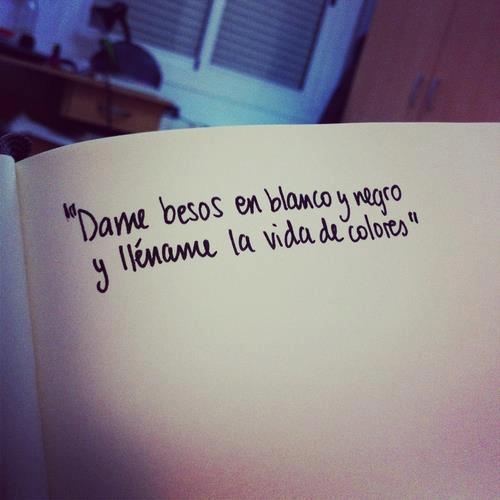 "Dame besos en blanco y negro
y lléname la vida de colores"